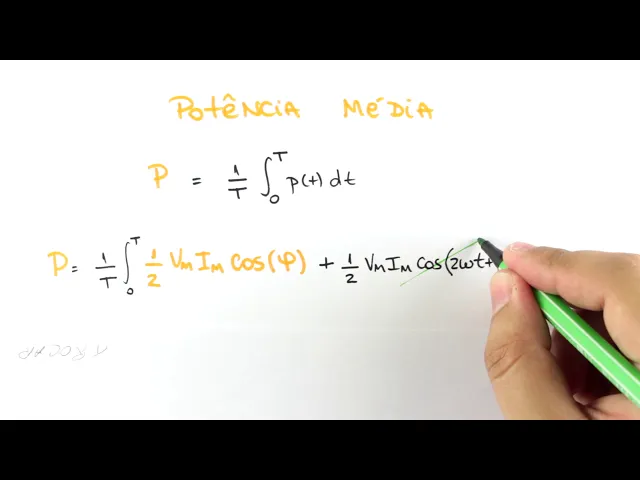 POTÊNCIA MÉDIA
P = 1/T ∫₀ᵀ p(t) dt
P = 1/T ∫₀ᵀ 1/2 VM IM COS(φ) + 1/2 VM IM COS(2ωt+